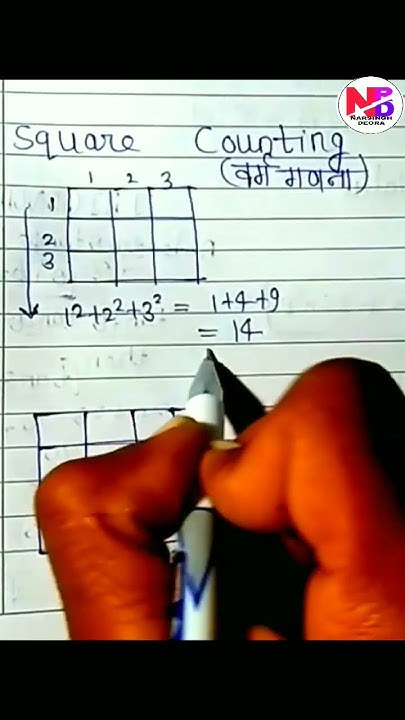 NPD
NARSINGH
DEORA
Square Counting
(वर्ग गणना)
1 2 3
1
2
3
1²+2²+3² = 1+4+9
= 14